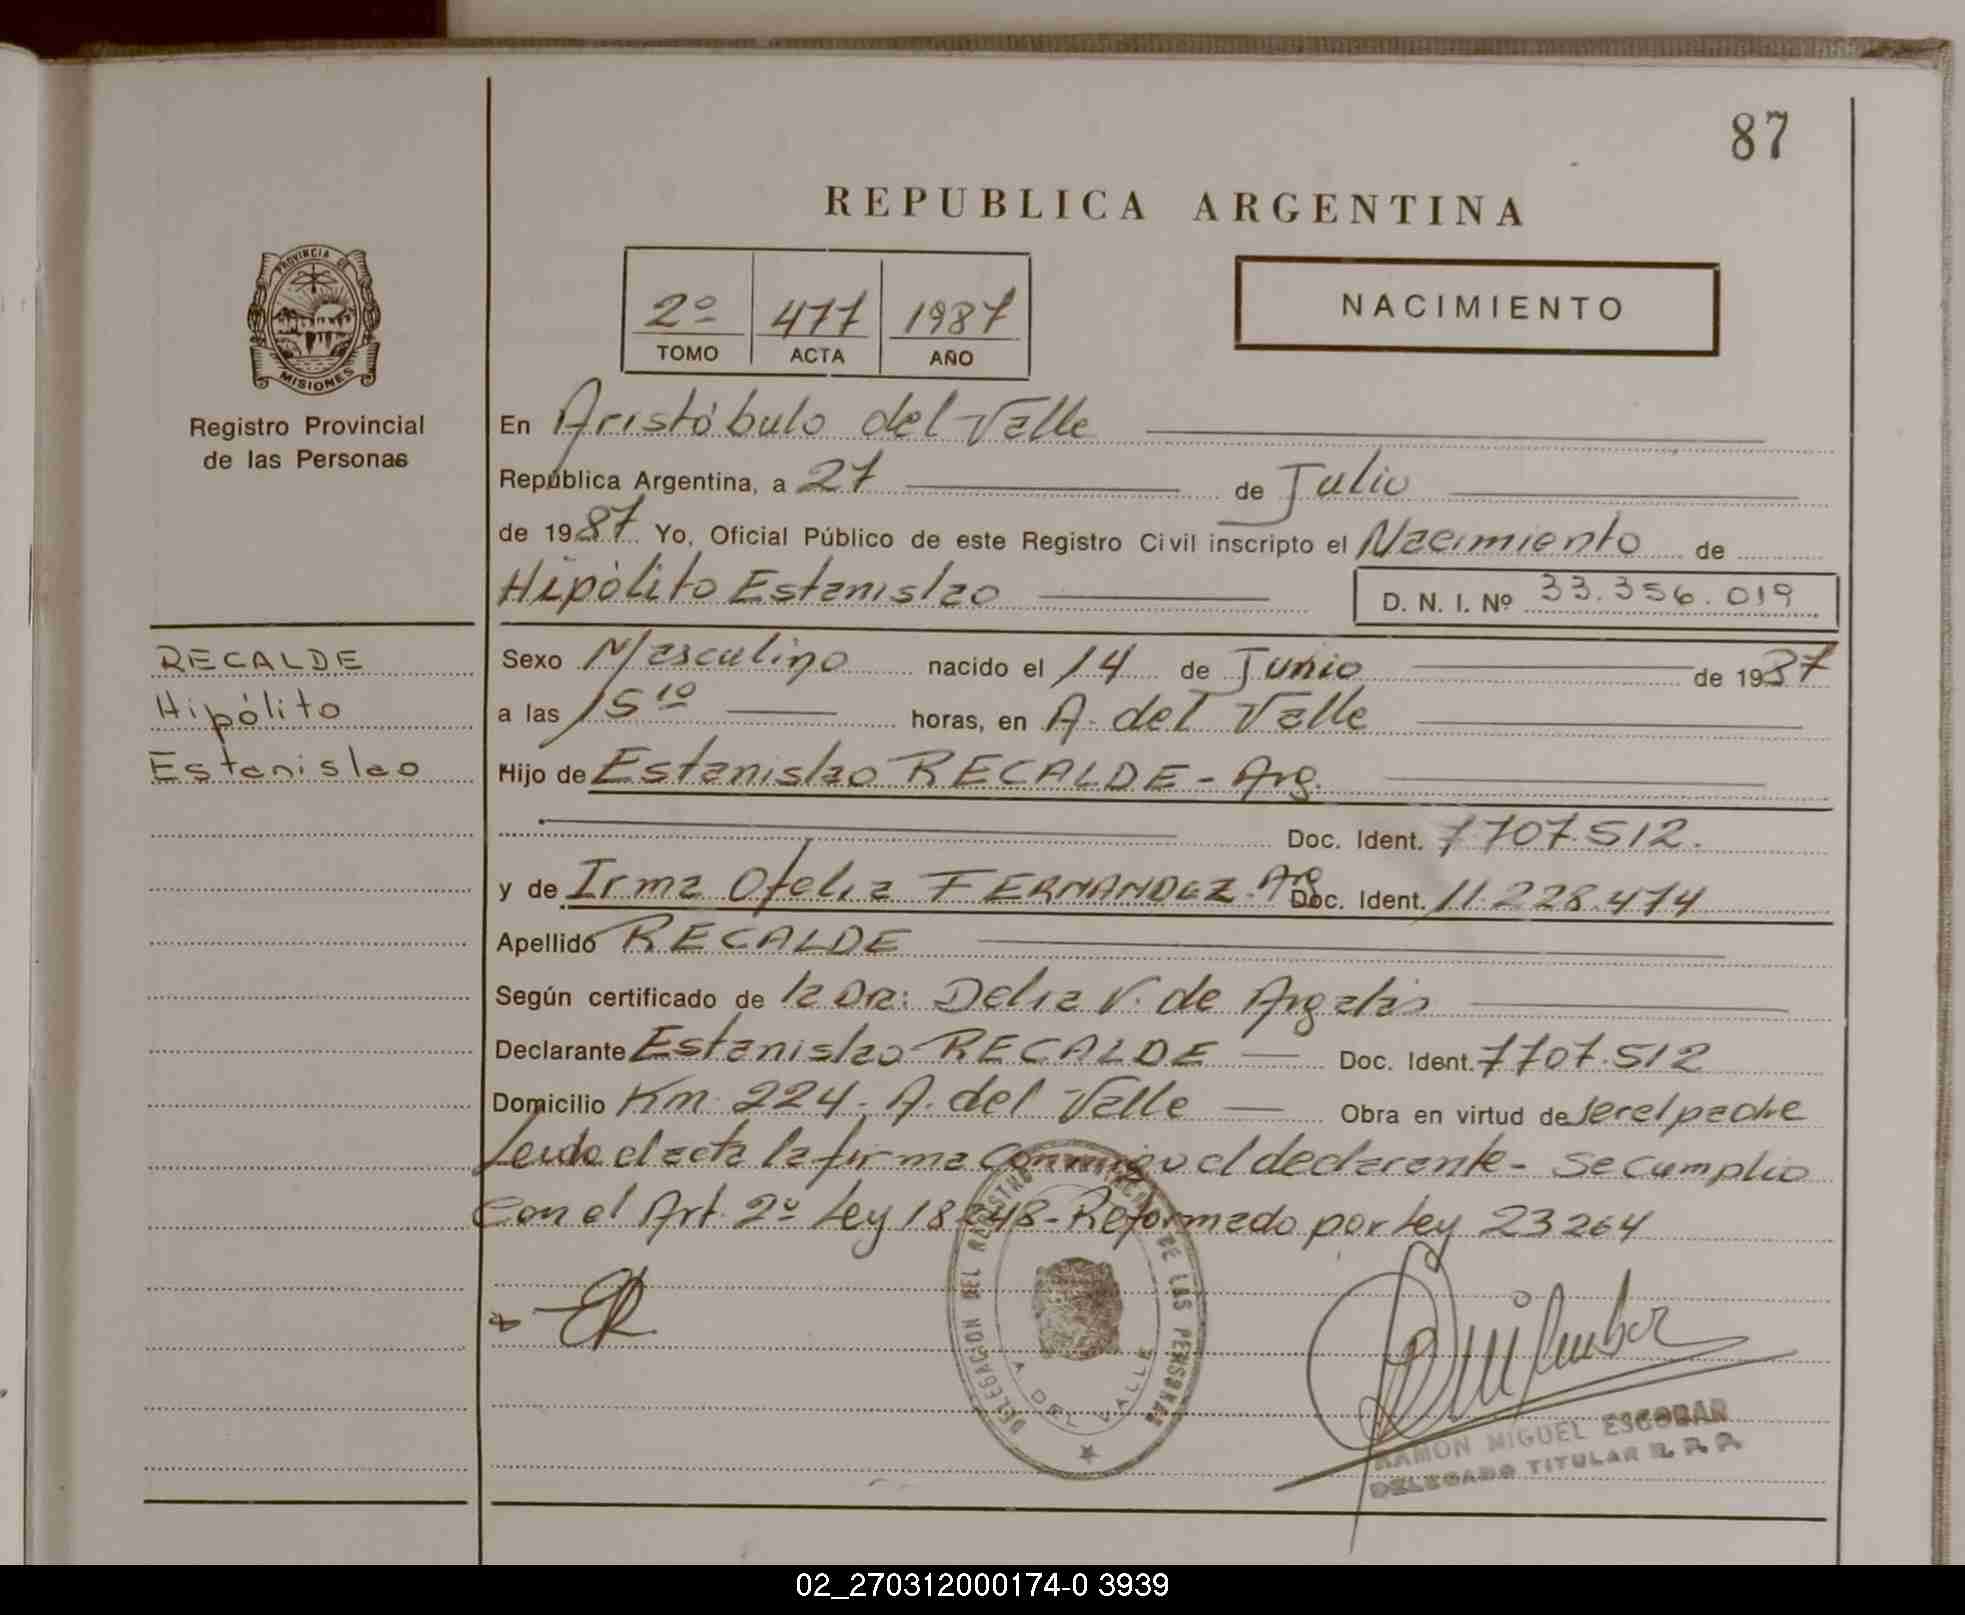 87
REPUBLICA ARGENTINA
2º 477 1987
TOMO ACTA AÑO
NACIMIENTO
PROVINCIA DE
MISIONES
Registro Provincial
de las Personas
En Aristóbulo del Valle
República Argentina, a 27 de Julio
de 1987 Yo, Oficial Público de este Registro Civil inscripto el Nacimiento de
Hipólito Estanislao D. N. I. Nº 33.356.019
RECALDE
Hipólito
Estanislao
Sexo Masculino nacido el 14 de Junio de 1987
a las 15 10 horas, en A. del Valle
Hijo de Estanislao RECALDE - Arg.
Doc. Ident. 7707.512.
y de Irma Ofelia FERNANDEZ. Arg Doc. Ident. 11.228.474
Apellido RECALDE
Según certificado de la Dra: Delia V. de
Declarante Estanislao RECALDE Doc. Ident. 7707.512
Domicilio Km. 224. A. del Valle Obra en virtud de ser el padre
Leida el acta la firma conmigo el declarante - Se cumplio
con el Art. 2º Ley 18248 - Reformado por Ley 23264
ER
DELEGACION DEL REGISTRO PROVINCIAL DE LAS PERSONAS
A DEL VALLE
RAMON MIGUEL ESCOBAR
DELEGADO TITULAR R. P. P.
02_270312000174-0 3939